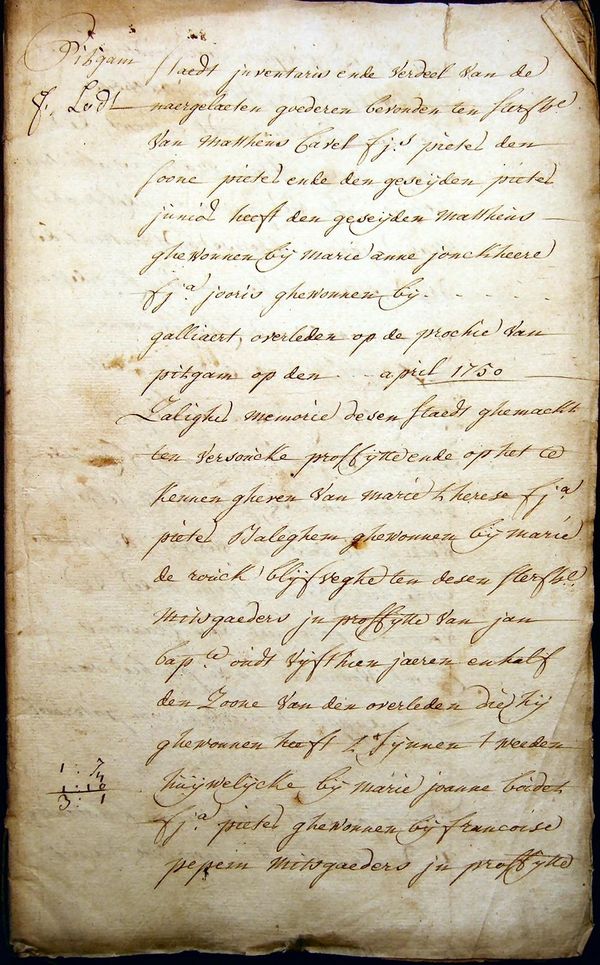 Pitgam
Staedt jnventaris ende verdeel van de
naergelaeten goederen bevonden ten sterfh.e
van Matthëus Cavel fj.s pieter den
soone pieter ende den geseijden pieter
junior heeft den geseijden Mattheus
ghewonnen bij marie anne jonckheere
fj.a jooris ghewonnen bij . . .
galliaert, overleden op de prochie van
pitgam op den april 1750
Zaligher memorie desen staedt ghemackt
ten versoucke proffijtte ende op het te
kennen gheven van marie therese fj.a
pieter Baleghem ghewonnen bij marie
de rouck blijfveghe ten desen sterfh.e
mitsgaeders jn proffijtte van jan
bap.te oudt vijfthien jaeren en half
den Zoone van den overleden die hij
ghewonnen heeft t'sijnnen tweeden
1 : 7
huijwelijcke bij marie joanne boidet
1 : 10
3 : 1
fj.a pieter ghewonnen bij francoise
pepein mitsgaeders jn proffijtte